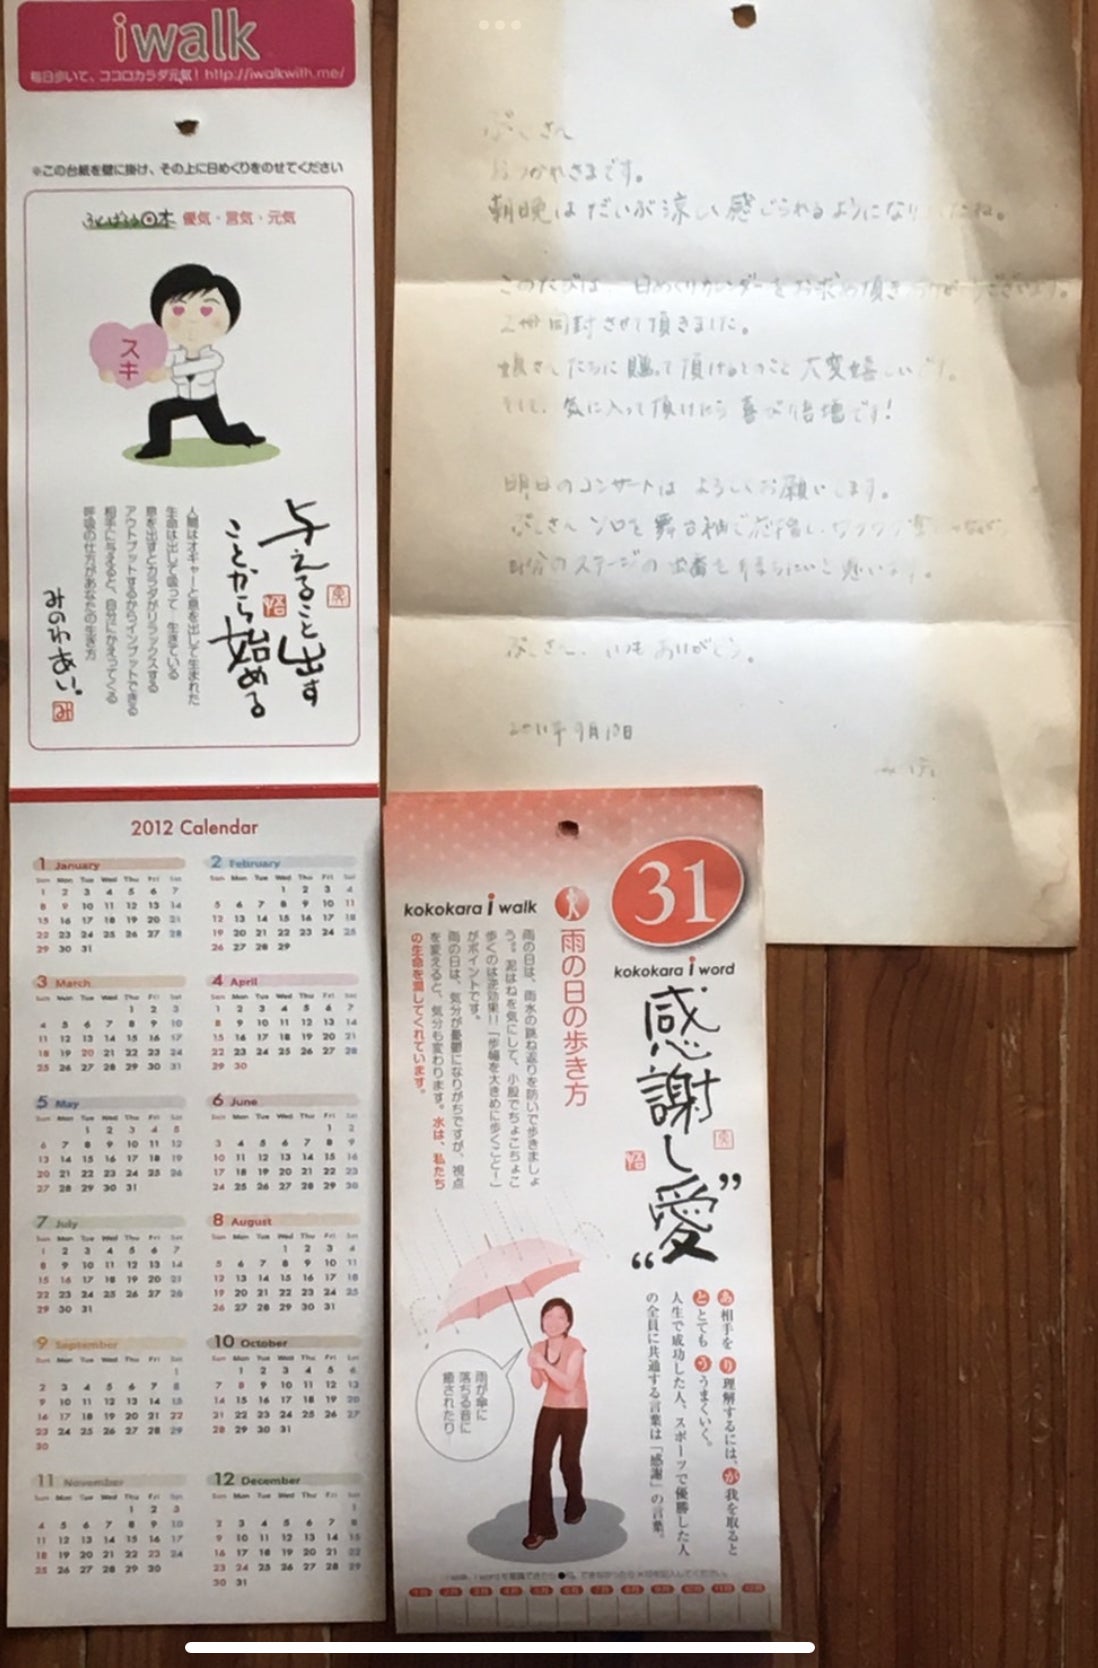 iwalk
毎日歩いて、ココロカラダ元気！http://iwalkwith.me/
※この台紙を壁に掛け、その上に日めくりをのせてください
優気・言気・元気
スキ
与えること出す
ことから始める
人間はオギャーと息を出して生まれた
生命は出して吸って 生きている
息を出すとカラダがリラックスする
アウトプットするからインプットできる
相手に与えると、自分にかえってくる
呼吸の仕方があなたの生き方
みのわあい。
み
2012 Calendar
1 January
Sun Mon Tue Wed Thu Fri Sat
1 2 3 4 5 6 7
8 9 10 11 12 13 14
15 16 17 18 19 20 21
22 23 24 25 26 27 28
29 30 31
2 February
Sun Mon Tue Wed Thu Fri Sat
1 2 3 4
5 6 7 8 9 10 11
12 13 14 15 16 17 18
19 20 21 22 23 24 25
26 27 28 29
3 March
Sun Mon Tue Wed Thu Fri Sat
1 2 3
4 5 6 7 8 9 10
11 12 13 14 15 16 17
18 19 20 21 22 23 24
25 26 27 28 29 30 31
4 April
Sun Mon Tue Wed Thu Fri Sat
1 2 3 4 5 6 7
8 9 10 11 12 13 14
15 16 17 18 19 20 21
22 23 24 25 26 27 28
29 30
5 May
Sun Mon Tue Wed Thu Fri Sat
1 2 3 4 5
6 7 8 9 10 11 12
13 14 15 16 17 18 19
20 21 22 23 24 25 26
27 28 29 30 31
6 June
Sun Mon Tue Wed Thu Fri Sat
1 2
3 4 5 6 7 8 9
10 11 12 13 14 15 16
17 18 19 20 21 22 23
24 25 26 27 28 29 30
7 July
Sun Mon Tue Wed Thu Fri Sat
1 2 3 4 5 6 7
8 9 10 11 12 13 14
15 16 17 18 19 20 21
22 23 24 25 26 27 28
29 30 31
8 August
Sun Mon Tue Wed Thu Fri Sat
1 2 3 4
5 6 7 8 9 10 11
12 13 14 15 16 17 18
19 20 21 22 23 24 25
26 27 28 29 30 31
9 September
Sun Mon Tue Wed Thu Fri Sat
1
2 3 4 5 6 7 8
9 10 11 12 13 14 15
16 17 18 19 20 21 22
23 24 25 26 27 28 29
30
10 October
Sun Mon Tue Wed Thu Fri Sat
1 2 3 4 5 6
7 8 9 10 11 12 13
14 15 16 17 18 19 20
21 22 23 24 25 26 27
28 29 30 31
11 November
Sun Mon Tue Wed Thu Fri Sat
1 2 3
4 5 6 7 8 9 10
11 12 13 14 15 16 17
18 19 20 21 22 23 24
25 26 27 28 29 30
12 December
Sun Mon Tue Wed Thu Fri Sat
1
2 3 4 5 6 7 8
9 10 11 12 13 14 15
16 17 18 19 20 21 22
23 24 25 26 27 28 29
30 31
さん
おつかれさまです。
朝晩はだいぶ涼しく感じられるようになりましたね。
このたびは、日めくりカレンダーをお求め頂きありがとうございます。
2冊同封させて頂きました。
娘さんたちに贈って頂けるとのこと大変嬉しいです。
そして、気に入って頂けたら喜び倍増です！
明日のコンサートはよろしくお願いします。
自分のステージの出番を
いつもありがとう。
2011年9月10日
31
kokokara i word
感謝し
”愛“
あ相手を り理解するには、が我を取ると
ととても ううまくいく。
人生で成功した人、スポーツで優勝した人
の全員に共通する言葉は「感謝」の言葉。
kokokara i walk
雨の日の歩き方
雨の日は、雨水の跳ね返りを防いで歩きましょ
う。泥はねを気にして、小股でちょこちょこ
歩くのは逆効果！！「歩幅を大きめに歩くこと！」
がポイントです。
雨の日は、気分が憂鬱になりがちですが、視点
を変えると、気分も変わります。水は、私たち
の生命を潤してくれています。
雨が傘に
落ちる音に
癒されたり
1月 2月 3月 4月 5月 6月 7月 8月 9月 10月 11月 12月